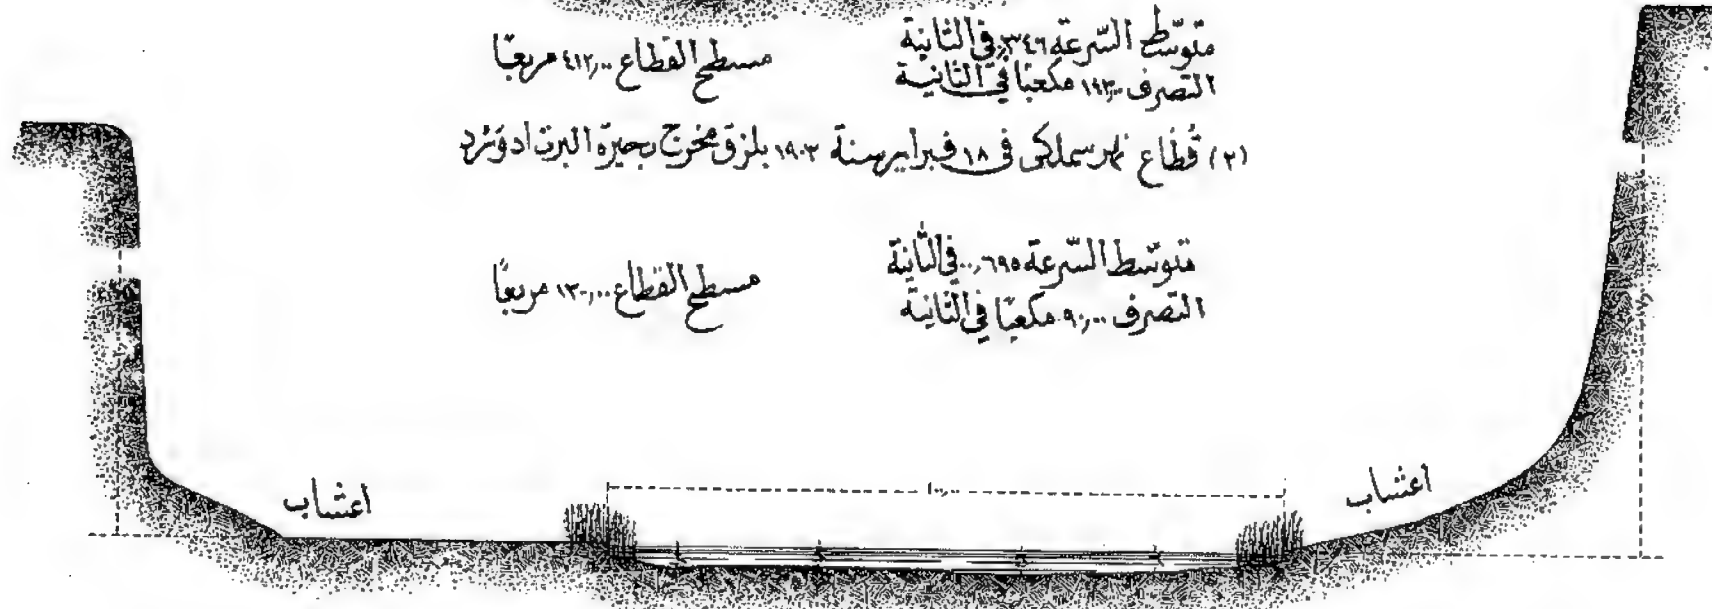 متوسّط السّرعة ٠٫٣٤٦ فى الثانية
التصرف ١٤٣٫٠٠ مكعبًا فى الثانية
مسطح القطاع ٤١٢٫٠٠ مربعًا
(٢) قطاع نهر سملكى فى ١٨ فبراير سنة ١٩٠٣ بلزق مخرج بحيرة البرت ادوَرد
متوسّط السّرعة ٠٫٦٩٥ في الثانية
التصرف ٩٠٫٠٠ مكعبًا في الثانية
مسطح القطاع ١٣٠٫٠٠ مربعًا
اعشاب
اعشاب